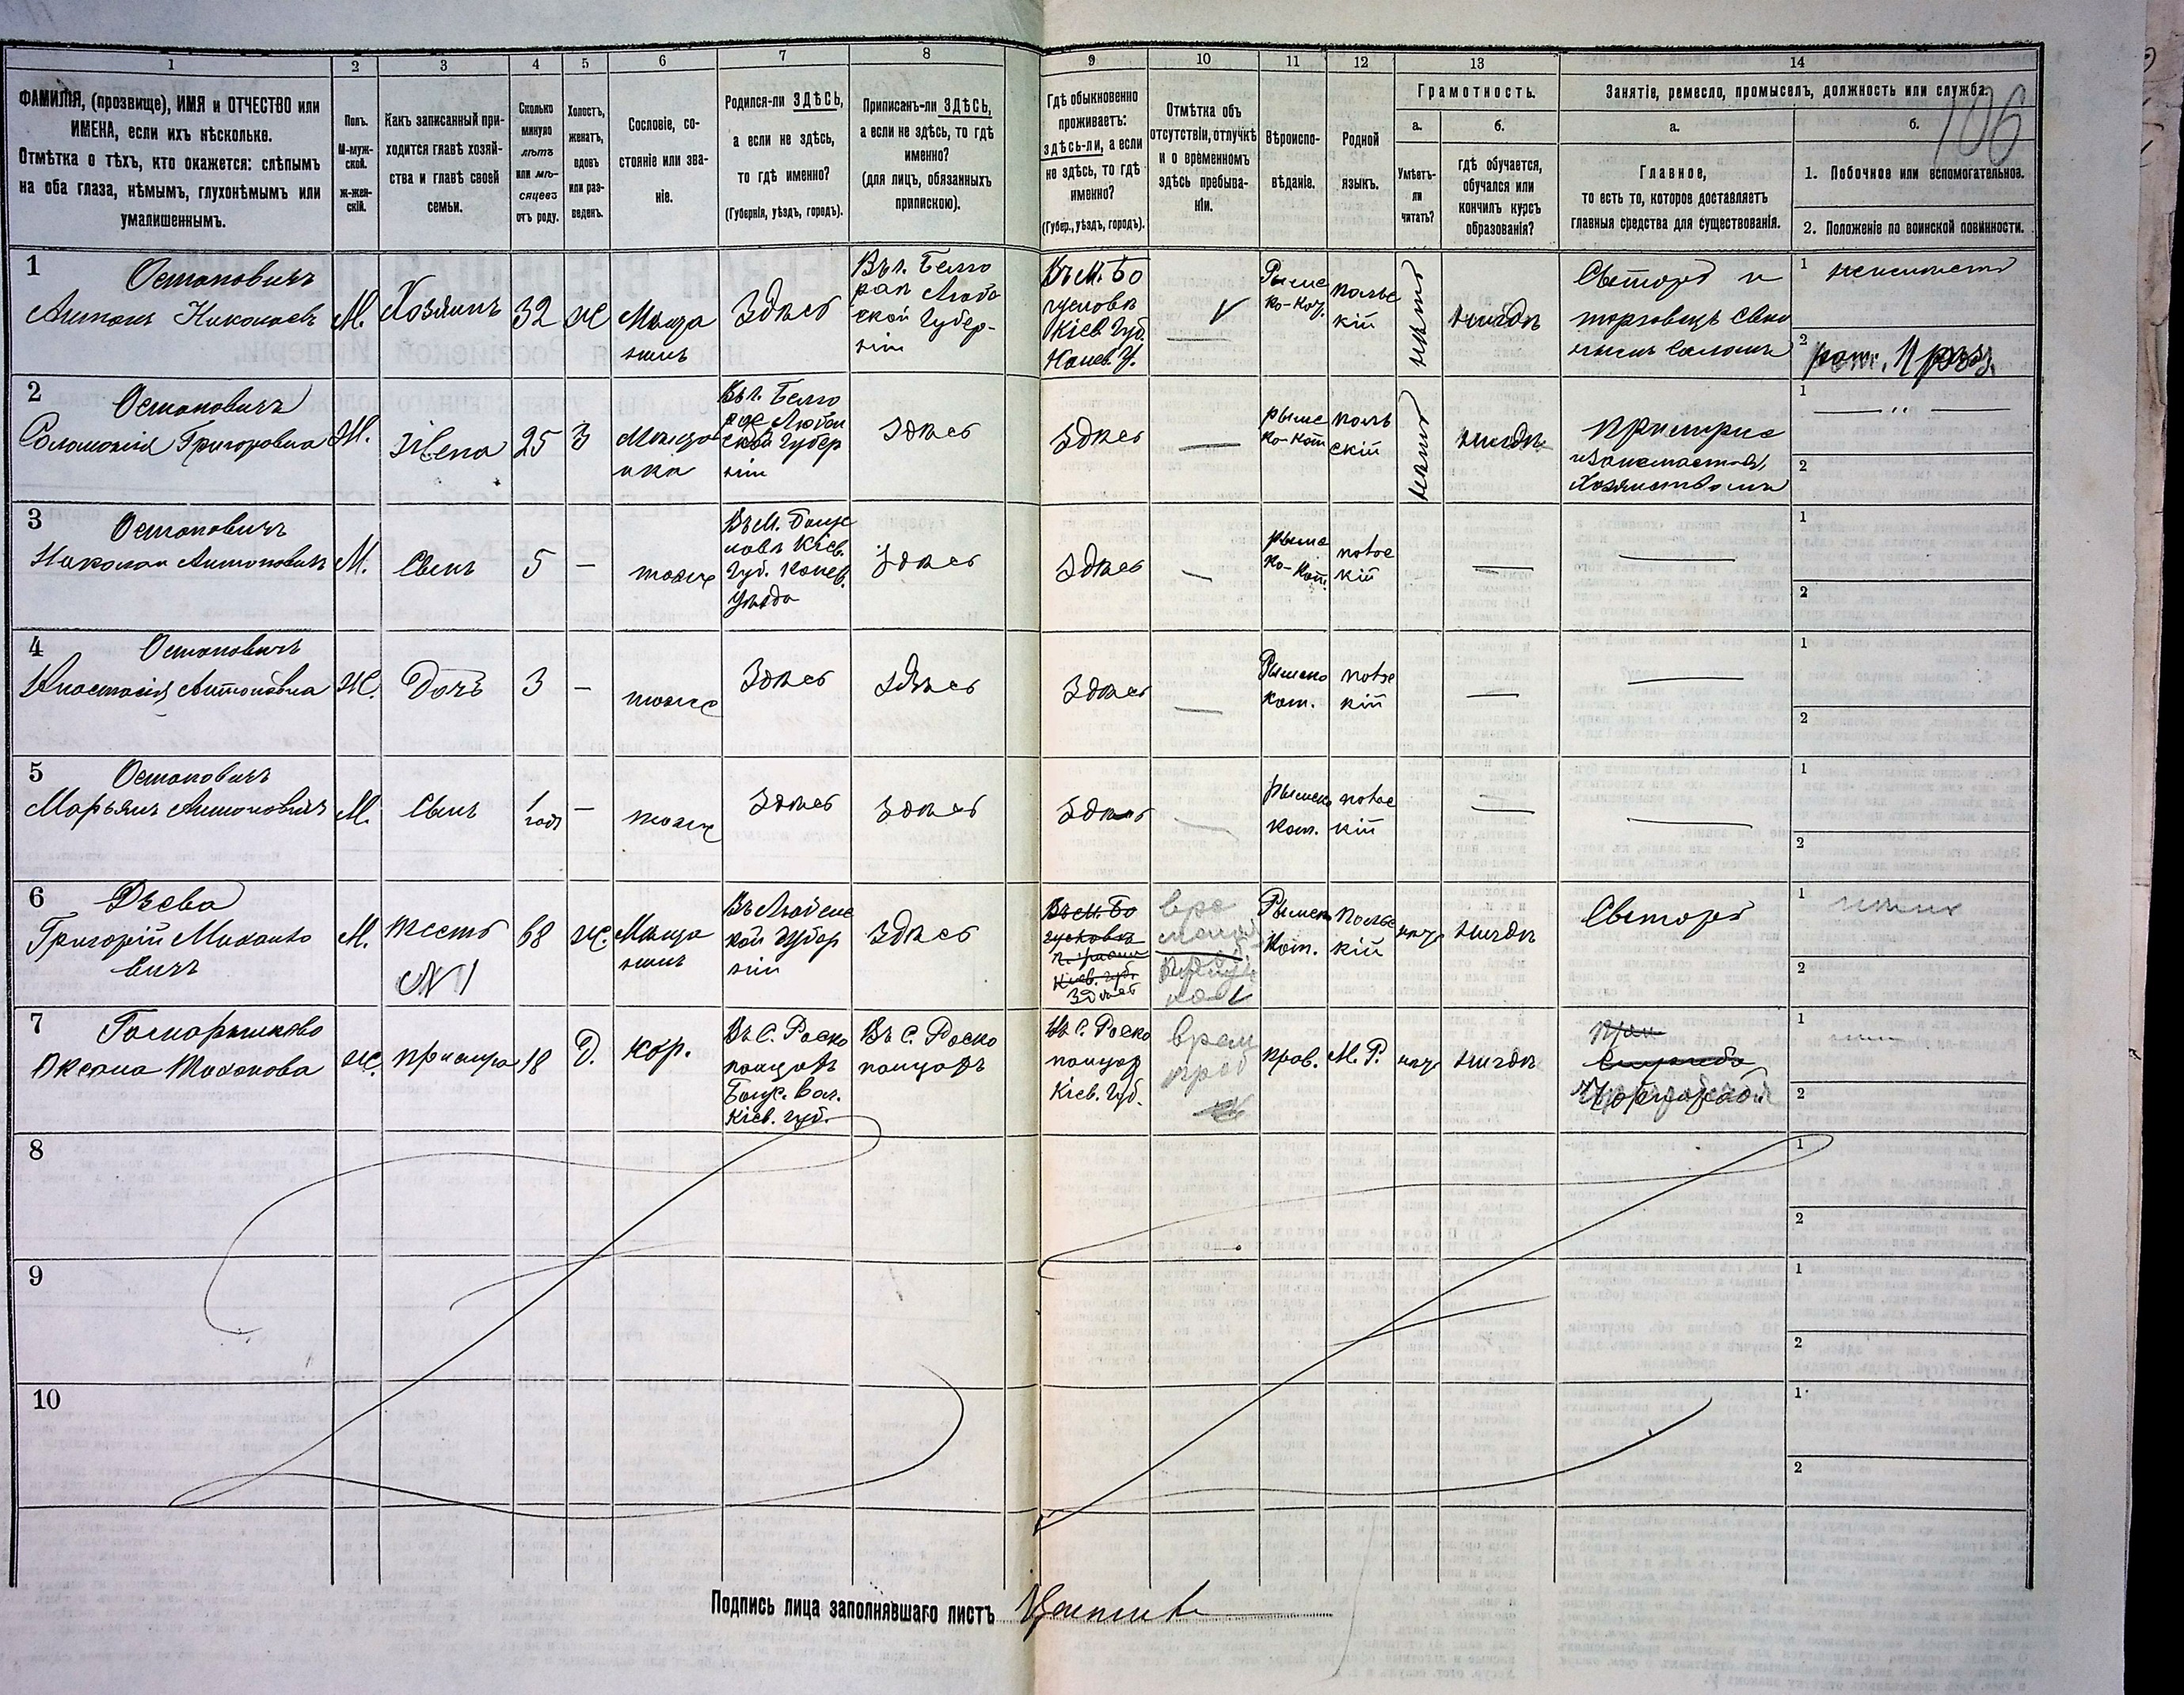 1 2 3 4 5 6 7 8 9 10 11 12 13 14
ФАМИЛІЯ, (прозвище), ИМЯ и ОТЧЕСТВО или
ИМЕНА, если ихъ нѣсколько.
Отмѣтка о тѣхъ, кто окажется: слѣпымъ
на оба глаза, нѣмымъ, глухонѣмымъ или
умалишеннымъ.
Полъ.
М-муж-
ской.
ж-жен-
скій.
Какъ записанный при-
ходится главѣ хозяй-
ства и главѣ своей
семьи.
Сколько
минуло
лѣтъ
или мѣ-
сяцевъ
отъ роду.
Холостъ,
женатъ,
вдовъ
или раз-
веденъ.
Сословіе, со-
стояніе или зва-
ніе.
Родился-ли ЗДѢСЬ,
а если не здѣсь,
то гдѣ именно?
(Губернія, уѣздъ, городъ).
Приписанъ-ли ЗДѢСЬ,
а если не здѣсь, то гдѣ
именно?
(для лицъ, обязанныхъ
припискою).
Гдѣ обыкновенно
проживаетъ:
здѣсь-ли, а если
не здѣсь, то гдѣ
именно?
(Губер., уѣздъ, городъ).
Отмѣтка объ
отсутствіи, отлучкѣ
и о временномъ
здѣсь пребыва-
ніи.
Вѣроиспо-
вѣданіе.
Родной
языкъ.
Грамотность.
а.
Умѣетъ-
ли
читать?
б.
гдѣ обучается,
обучался или
кончилъ курсъ
образованія?
Занятіе, ремесло, промыселъ, должность или служба.
106
а.
Главное,
то есть то, которое доставляетъ
главныя средства для существованія.
б.
1. Побочное или вспомогательное.
2. Положеніе по воинской повинности.
1
Остаповичъ
Антонъ Николаевъ
М.
Хозяинъ
32
Ж
Мѣща
нинъ
Здѣсь
Въ г. Белго
рап Любл
ской Губер-
ніи
Въ м. Бо
гуславъ
Кіев. Губ.
Канев. У.
Римс
ко-кат.
польс
кій
нѣтъ
нигдѣ
торговецъ свин
нымъ саломъ
1
2
рат. 1 разр.
2
Остаповичъ
Соломонія Григоровна
Ж.
Жена
25
З
Мѣща
нка
Въ г. Белго
Люблн
ской Губер
ніи
Здѣсь
Здѣсь
рымс
ко-кат
поль
скій
нѣтъ
нигдѣ
при муже
хозяйствомъ
1
— " —
2
3
Остаповичъ
Николай Антоновичъ
М.
Сынъ
5
—
тоже
Въ м. Богус
лавъ Кіев.
Губ. Канев.
Уѣзда
Здѣсь
Здѣсь
—
рымс
ко-кат.
польс
кій
—
—
1
2
4
Остаповичъ
Анастасія Антоновна
Ж.
Дочь
3
—
тоже
Здѣсь
Здѣсь
Здѣсь
—
Рымско
кат.
польс
кій
—
—
1
2
5
Остаповичъ
Марьянъ Антоновичъ
М.
Сынъ
1
годъ
—
тоже
Здѣсь
Здѣсь
Здѣсь
—
рымско
кат.
польс
кій
—
—
1
2
6
Дзева
Григорій Михайло
вичъ
М.
тесть
№ 1
68
Ж.
Мѣща
нинъ
Въ Люблинс
кой Губер
ніи
Здѣсь
Въ м. Бо
гуславъ
Кіев. губ.
Здѣсь
Римск
Кат.
Польс
кій
нигдѣ
1
2
7
Оксана
Ж.
прислуга
18
Д.
кр.
Въ С. Роско
панцахъ
Богус. Вол.
Кіев. губ.
Въ С. Роско
панцахъ
Въ С. Роско
панцах
Кіев. Губ.
прав.
М. Р.
нигдѣ
1
2
8
1
2
9
1
2
10
1
2
Подпись лица заполнявшаго листъ